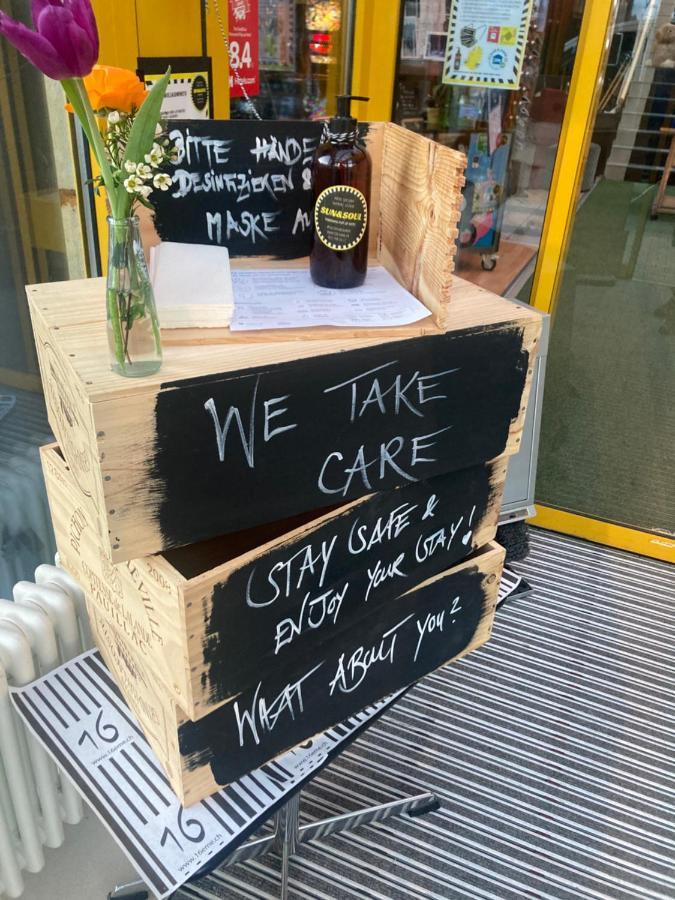 84
BITTE HÄNDE
DESINFIZIEREN &
MASKE AU
SUN&SOUL
WE TAKE
CARE
STAY SAFE &
ENJOY YOUR STAY!
WHAT ABOUT YOU?
PAUILLAC
16
www.16eme.ch
16
www.16eme.ch